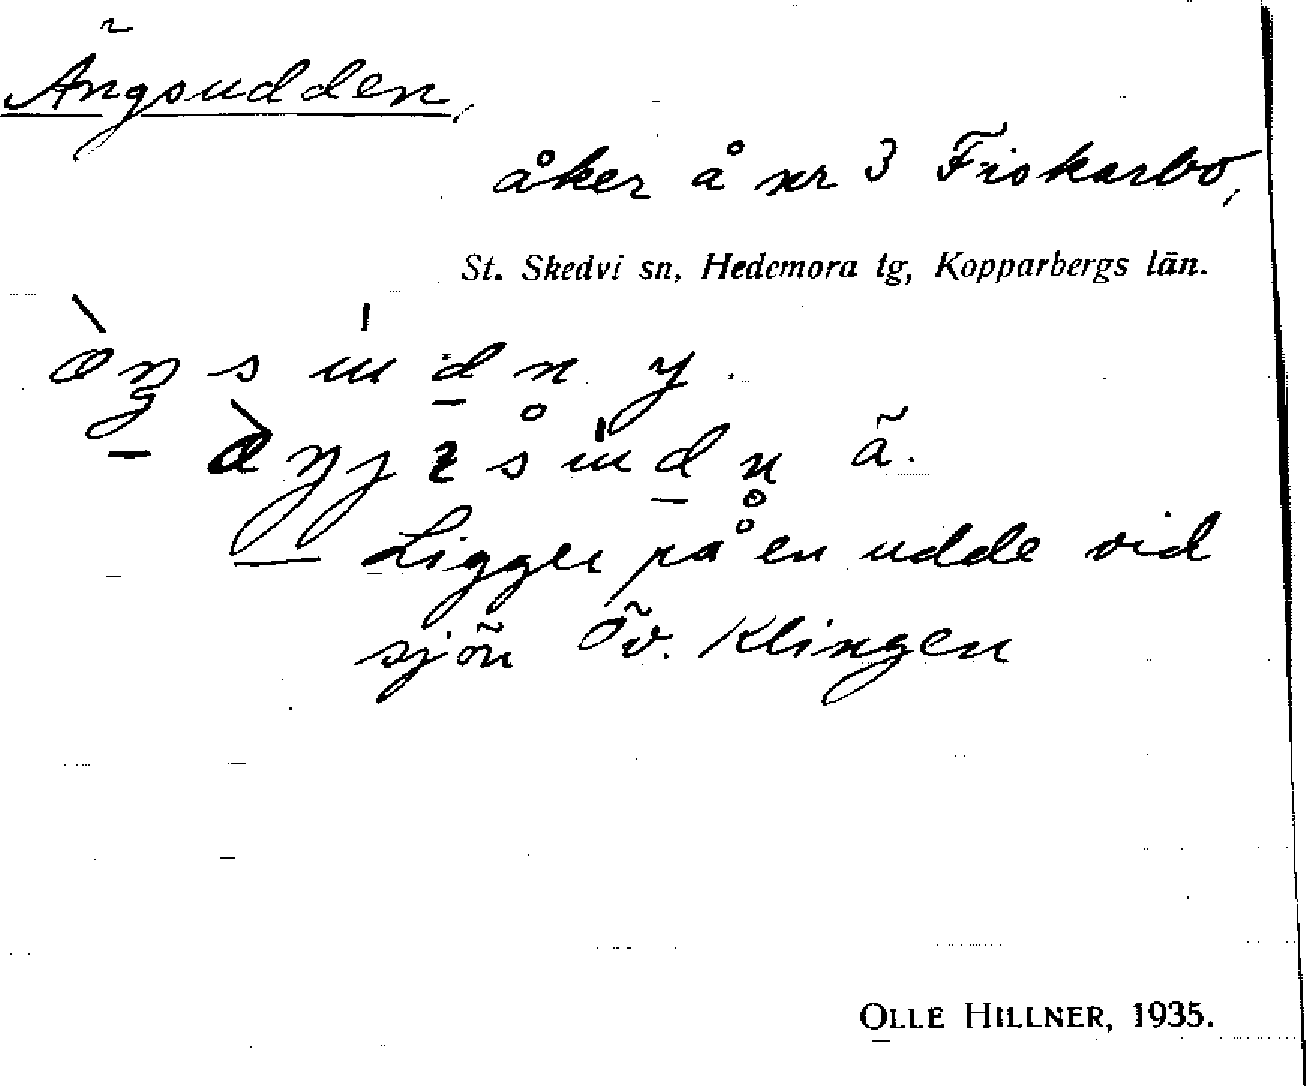 Ängsudden,
åker å nr 3 Fiskarbo,
St. Skedvi sn, Hedemora tg, Kopparbergs län.
Ligger på en udde vid
sjön Öv. Klingen
OLLE HILLNER, 1935.